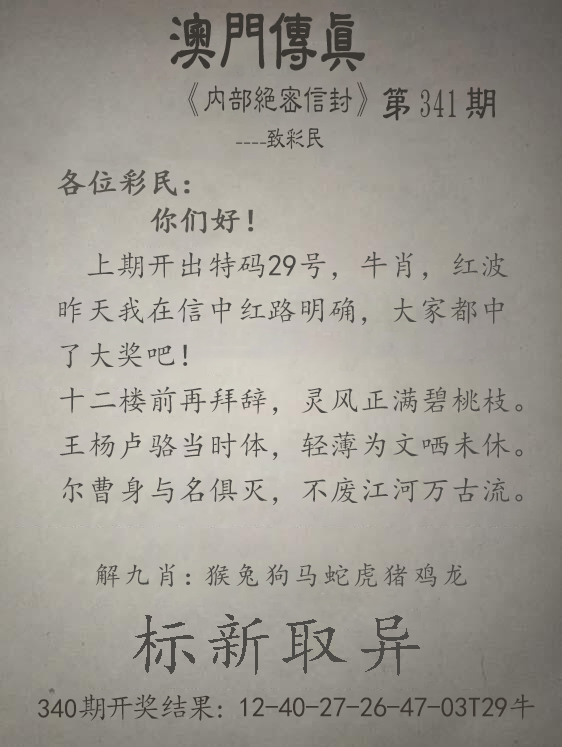 澳門傳真
《内部絕密信封》第341期
----致彩民
各位彩民：
你们好！
上期开出特码29号，牛肖，红波
昨天我在信中红路明确，大家都中
了大奖吧！
十二楼前再拜辞，灵风正满碧桃枝。
王杨卢骆当时体，轻薄为文哂未休。
尔曹身与名俱灭，不废江河万古流。
解九肖：猴兔狗马蛇虎猪鸡龙
标新取异
340期开奖结果：12-40-27-26-47-03T29牛